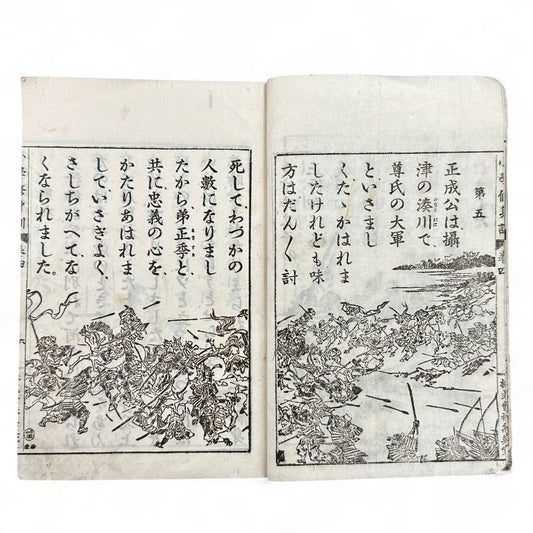 第五
正成公は攝
津の湊川で
尊氏の大軍
といさまし
くたゝかはれま
したけれども味
方はだん〳〵討
死して、わづかの
人數になりまし
たから、弟正季と
共に忠義の心を
かたりあはれま
して、いさぎよく、
さしちがへてな
くなられました。